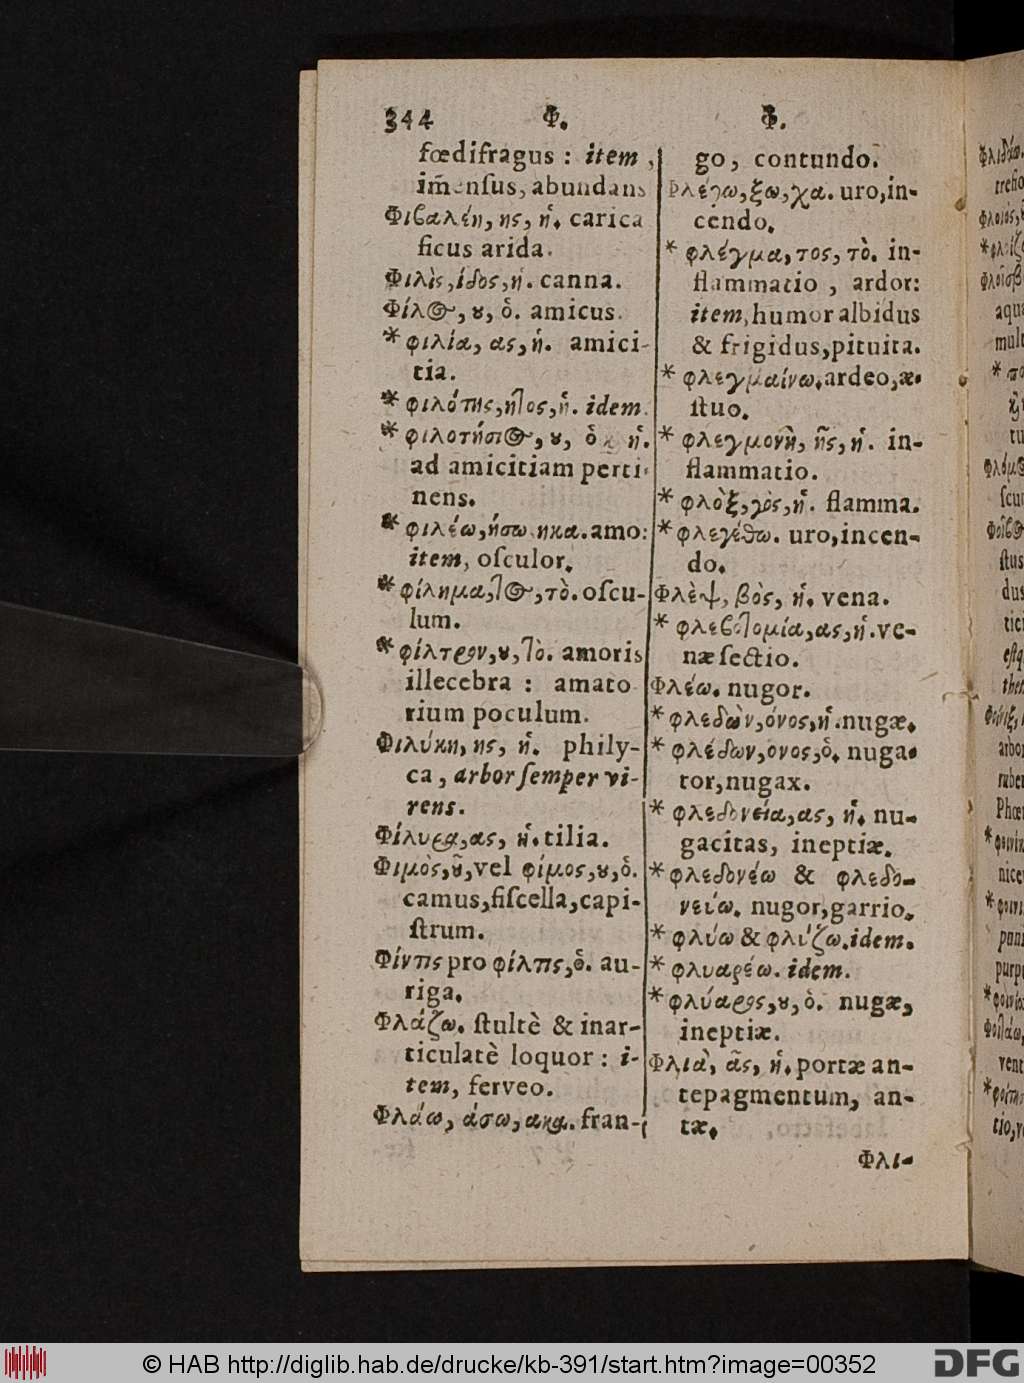 344 Φ. Φ.
fœdifragus : item,
im̄enſus, abundans
Φιϐαλέη, ης, ἡ. carica
ficus arida.
Φιλὶς, ίδος, ἡ. canna.
Φίλος, ȣ, ὁ. amicus.
* φιλία, ας, ἡ. amici-
tia.
* φιλότης, ητος, ἡ. idem.
* φιλοτήσιος, ȣ, ὁ κ ἡ.
ad amicitiam perti-
nens.
* φιλέω, ήσω, ηκα. amo:
item, oſculor.
* φίλημα, τος, τὸ. oſcu-
lum.
* φίλτρον, ȣ, τὸ. amoris
illecebra : amato
rium poculum.
Φιλύκη, ης, ἡ. phily-
ca, arbor ſemper vi-
rens.
Φίλυρα, ας, ἡ. tilia.
Φιμὸς, ȣ͂, vel φίμος, ȣ, ὁ.
camus, fiſcella, capi-
ſtrum.
Φίντις pro φίλτις, ὁ. au-
riga.
Φλάζω. ſtultè & inar-
ticulatè loquor : i-
tem, ferveo.
Φλάω, άσω, ακα. fran-
go, contundo.
Φλέγω, ξω, χα. uro, in-
cendo.
* φλέγμα, τος, τὸ. in-
flammatio , ardor:
item, humor albidus
& frigidus, pituita.
* φλεγμαίνω. ardeo, æ-
ſtuo.
* φλεγμονὴ, ῆς, ἡ. in-
flammatio.
* φλὸξ, γὸς, ἡ. flamma.
* φλεγέθω. uro, incen-
do.
Φλὲψ, βὸς, ἡ. vena.
* φλεϐοτομία, ας, ἡ. ve-
næ ſectio.
Φλέω. nugor.
* φλεδὼν, όνος, ἡ. nugæ.
* φλέδων, ονος, ὁ. nuga-
tor, nugax.
* φλεδονεία, ας, ἡ. nu-
gacitas, ineptiæ.
* φλεδονέω & φλεδο-
νεύω. nugor, garrio.
* φλύω & φλύζω. idem.
* φλυαρέω. idem.
* φλύαρος, ȣ, ὁ. nugæ,
ineptiæ.
Φλιὰ, ᾶς, ἡ. portæ an-
tepagmentum, an-
tæ.
Φλι-
© HAB http://diglib.hab.de/drucke/kb-391/start.htm?image=00352
DFG